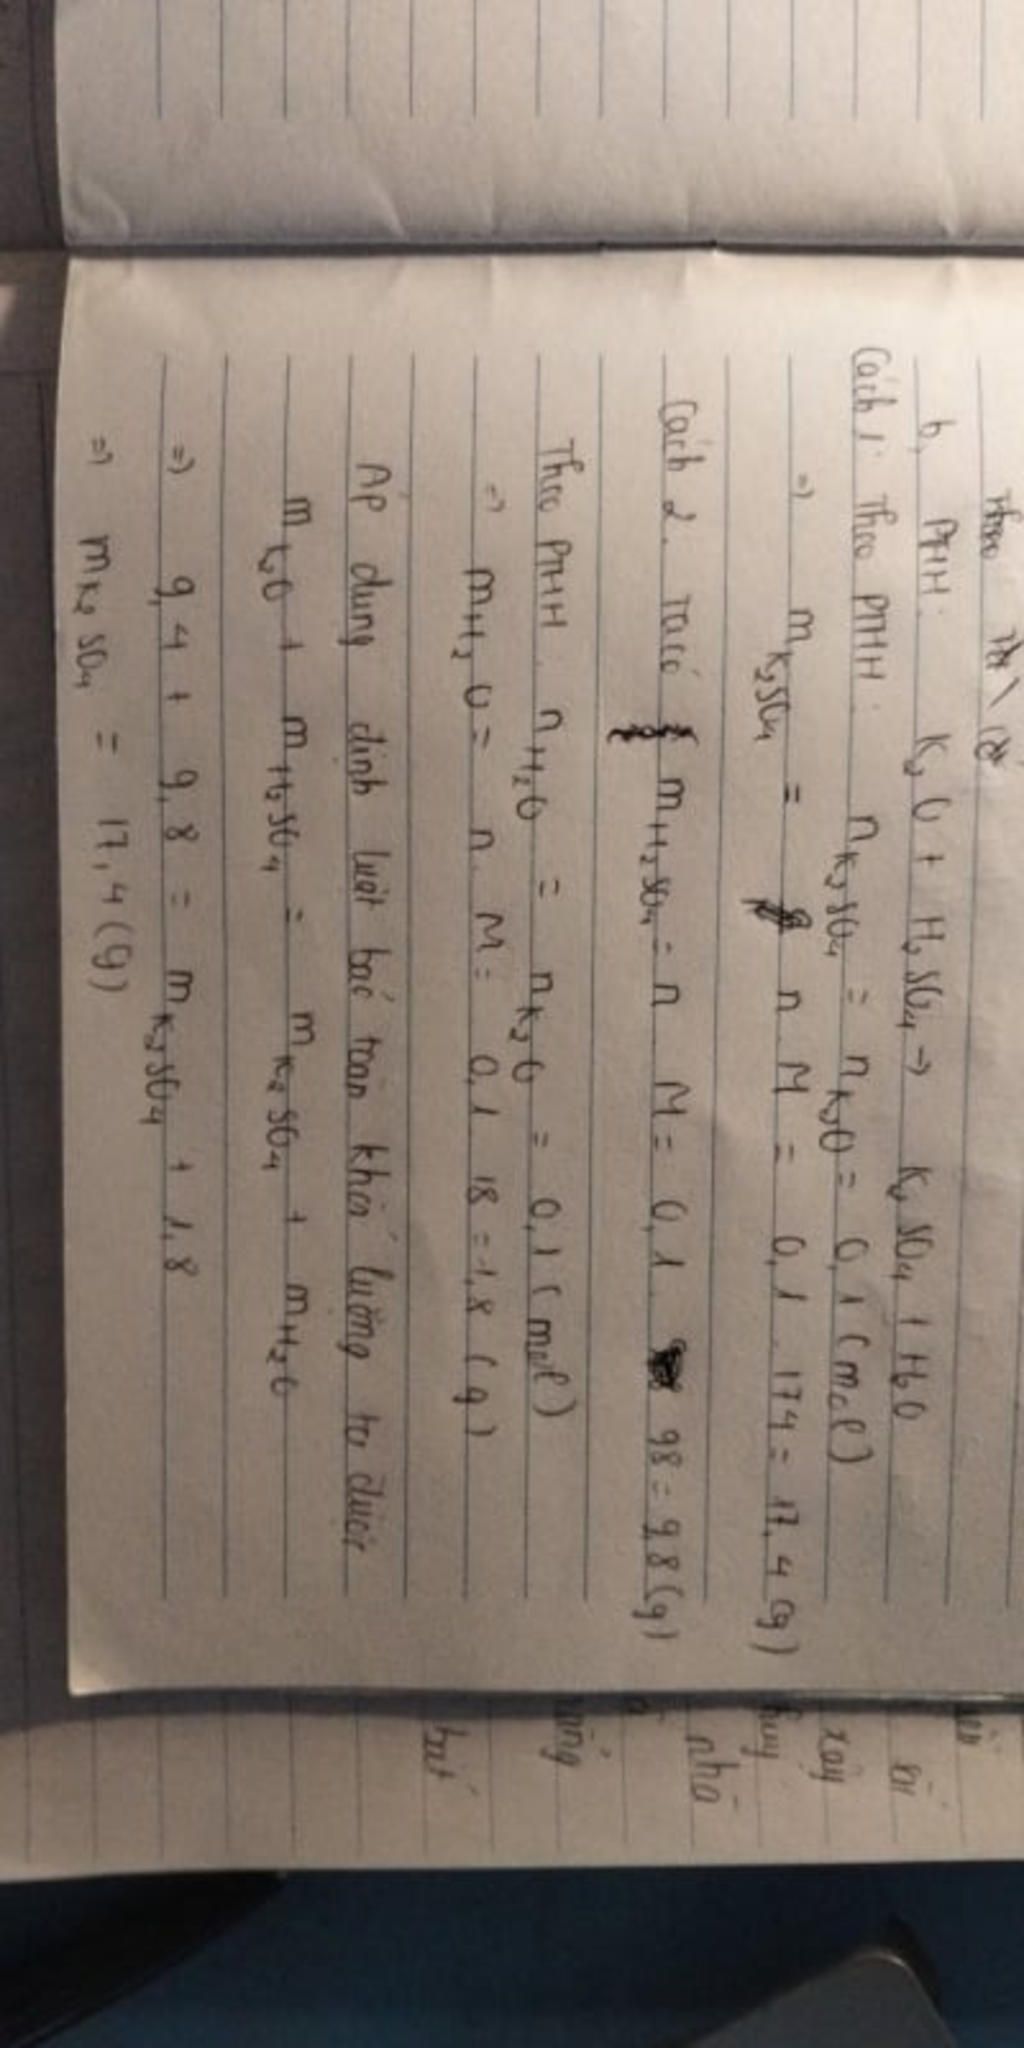 Theo
b, PTHH: K₂O + H₂SO₄ → K₂SO₄ + H₂O
Cách 1: Theo PTHH: nK₂SO₄ = nK₂O = 0,1 (mol)
=) mK₂SO₄ = n . M = 0,1 . 174 = 17,4 (g)
Cách 2. Ta có mH₂SO₄ = n M = 0,1 . 98 = 9,8 (g)
Theo PTHH: nH₂O = nK₂O = 0,1 (mol)
=) mH₂O = n . M = 0,1 18 = 1,8 (g)
Áp dụng định luật bảo toàn khối lượng ta được
mK₂O + mH₂SO₄ = mK₂SO₄ + mH₂O
=) 9,4 + 9,8 = mK₂SO₄ + 1,8
=) mK₂SO₄ = 17,4 (g)
xảy
nhà
bát